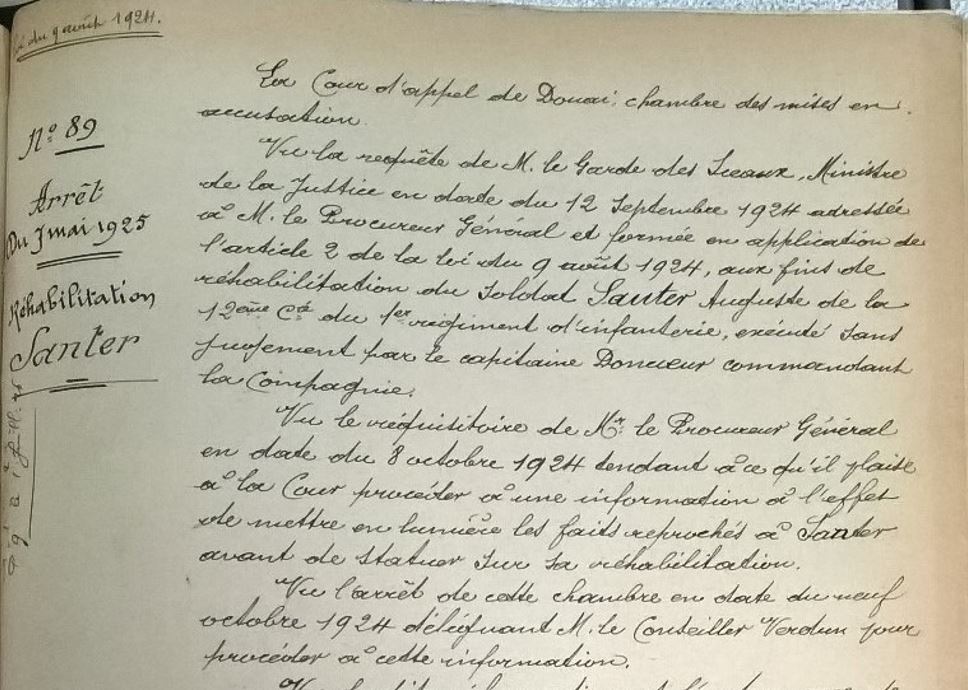 Loi du 9 août 1924.
N° 89
Arrêt
Du 7 mai 1925
Réhabilitation
Santer
La Cour d'appel de Douai, chambre des mises en
accusation.
Vu la requête de M. le Garde des Sceaux, Ministre
de la Justice en date du 12 Septembre 1924 adressée
à M. le Procureur Général et formée en application de
l'article 2 de la loi du 9 août 1924, aux fins de
réhabilitation du soldat Santer Auguste de la
12ème Cie du 1er régiment d'infanterie, exécuté sans
jugement par le capitaine Doncœur commandant
la Compagnie.
Vu le réquisitoire de Mr. le Procureur Général
en date du 8 octobre 1924 tendant à ce qu'il plaise
à la Cour procéder à une information à l'effet
de mettre en lumière les faits reprochés à Santer
avant de statuer sur sa réhabilitation.
Vu l'arrêt de cette chambre en date du neuf
octobre 1924 déléguant M. le Conseiller Verdun pour
procéder à cette information.